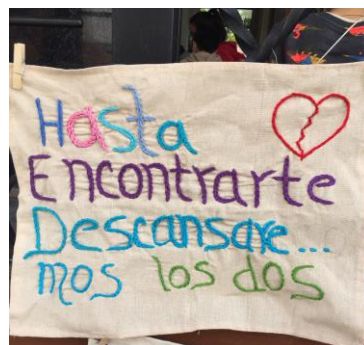 Hasta
Encontrarte
Descansare...
mos los dos